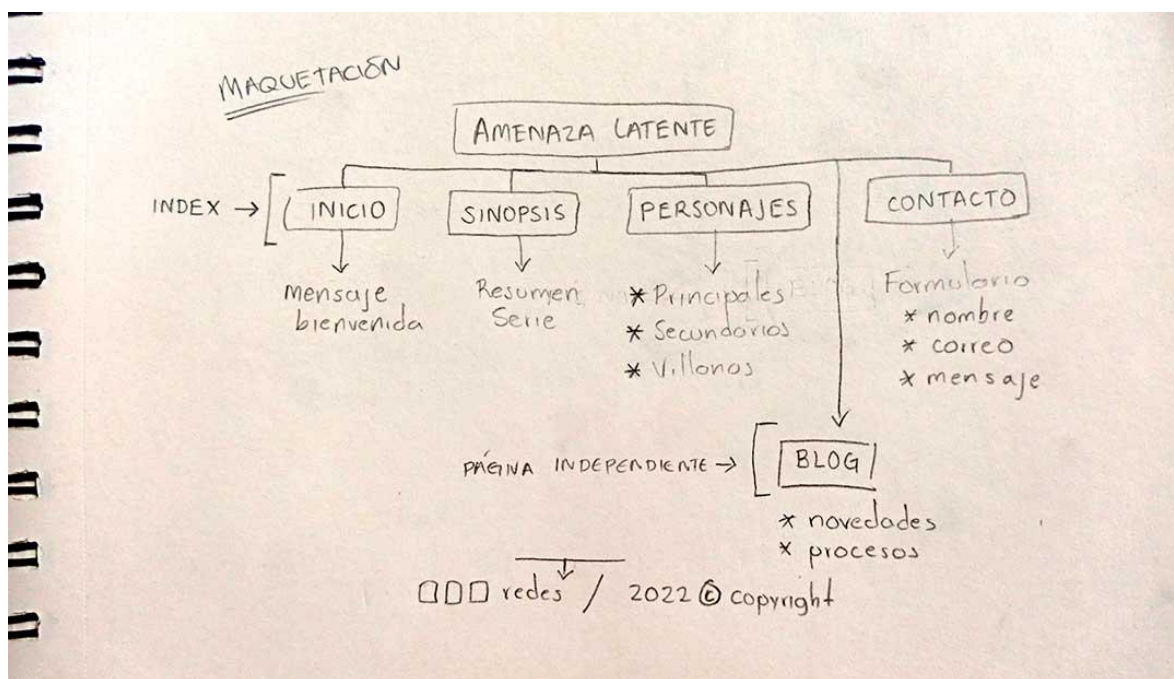 MAQUETACIÓN
AMENAZA LATENTE
INDEX → INICIO SINOPSIS PERSONAJES CONTACTO
Mensaje bienvenida
Resumen Serie
* Principales
* Secundarios
* Villanos
Formulario
* nombre
* correo
* mensaje
PÁGINA INDEPENDIENTE → BLOG
* novedades
* procesos
redes / 2022 © copyright